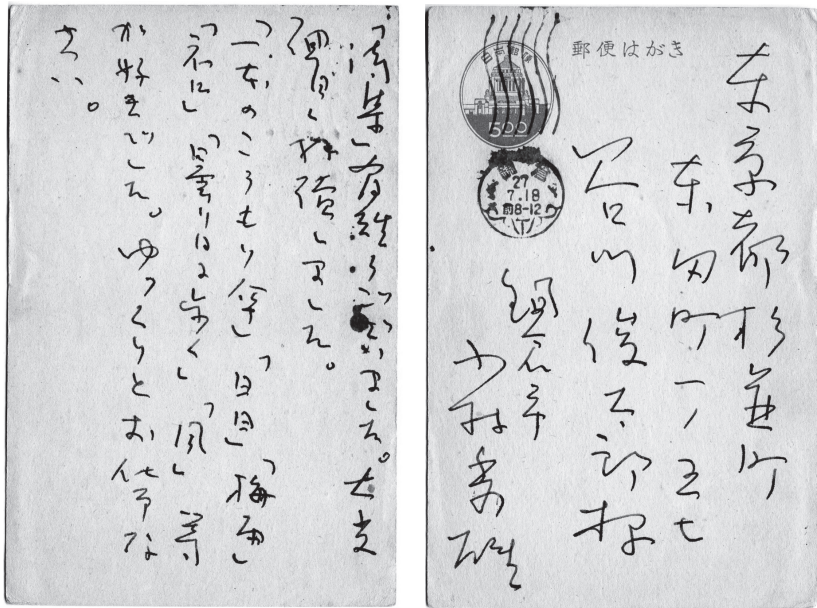 郵便はがき
日本郵便
500
27
7.18
前8-12
東京都杉並区
東田町一ノ五七
谷川俊太郎様
鎌倉市
小林秀雄
御集有難うございました。大変
面白く拝読しました。
「一本のこうもり傘」「日日」「梅雨」
「ネロ」「曇り日に歩く」「風」等
が好きでした。ゆっくりとお仕事な
さい。